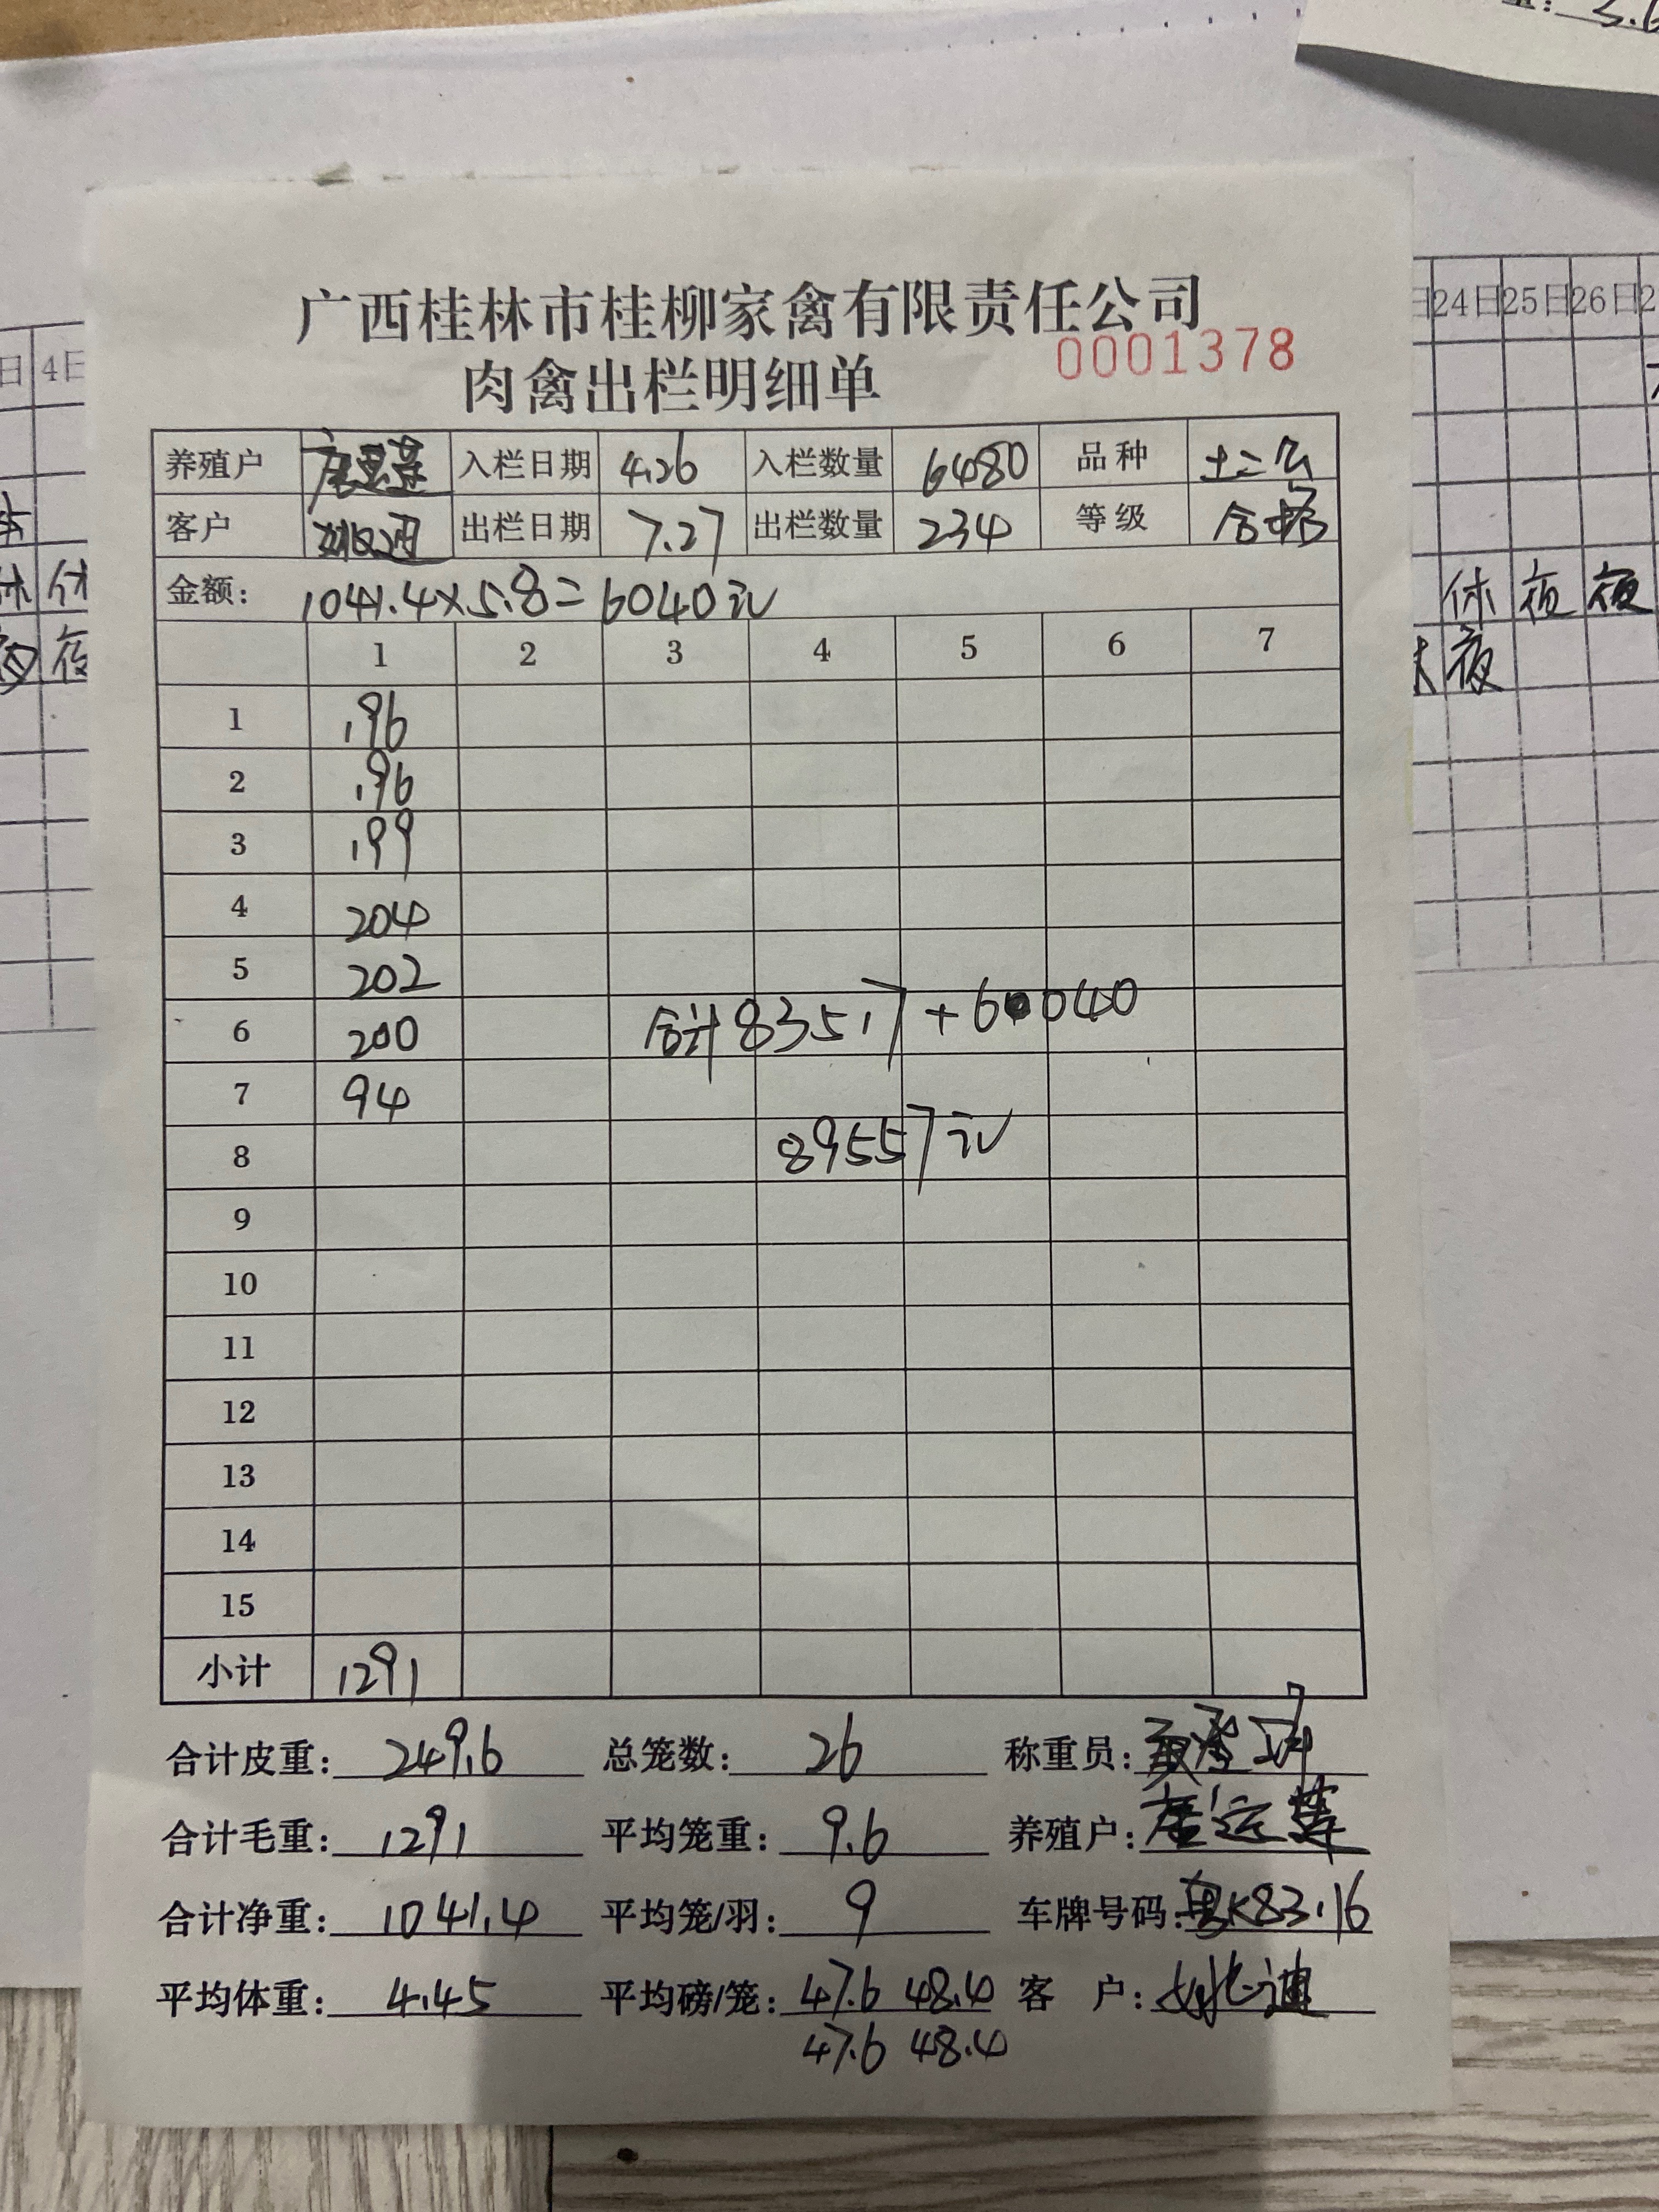 广西桂林市桂柳家禽有限责任公司
肉禽出栏明细单 0001378
养殖户 入栏日期 4.26 入栏数量 6480 品种 土二
客户 姚迪 出栏日期 7.27 出栏数量 234 等级 合格
金额: 1041.4×5.8=6040元
1 2 3 4 5 6 7
1 196
2 196
3 199
4 204
5 202
6 200 合计83517+6 040
7 94
8 89557元
9
10
11
12
13
14
15
小计 1291
合计皮重: 249.6 总笼数: 26 称重员:
合计毛重: 1291 平均笼重: 9.6 养殖户: 唐运莲
合计净重: 1041.4 平均笼/羽: 9 车牌号码: 粤K83.16
平均体重: 4.45 平均磅/笼: 47.6 48.4 客 户: 姚迪
47.6 48.4
4日
24日 25日 26日
休 休 休 夜 夜
夜 夜